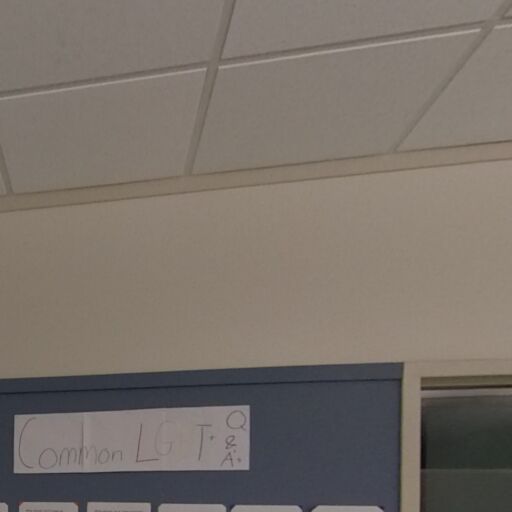 Common LG T.
Q
&
A.